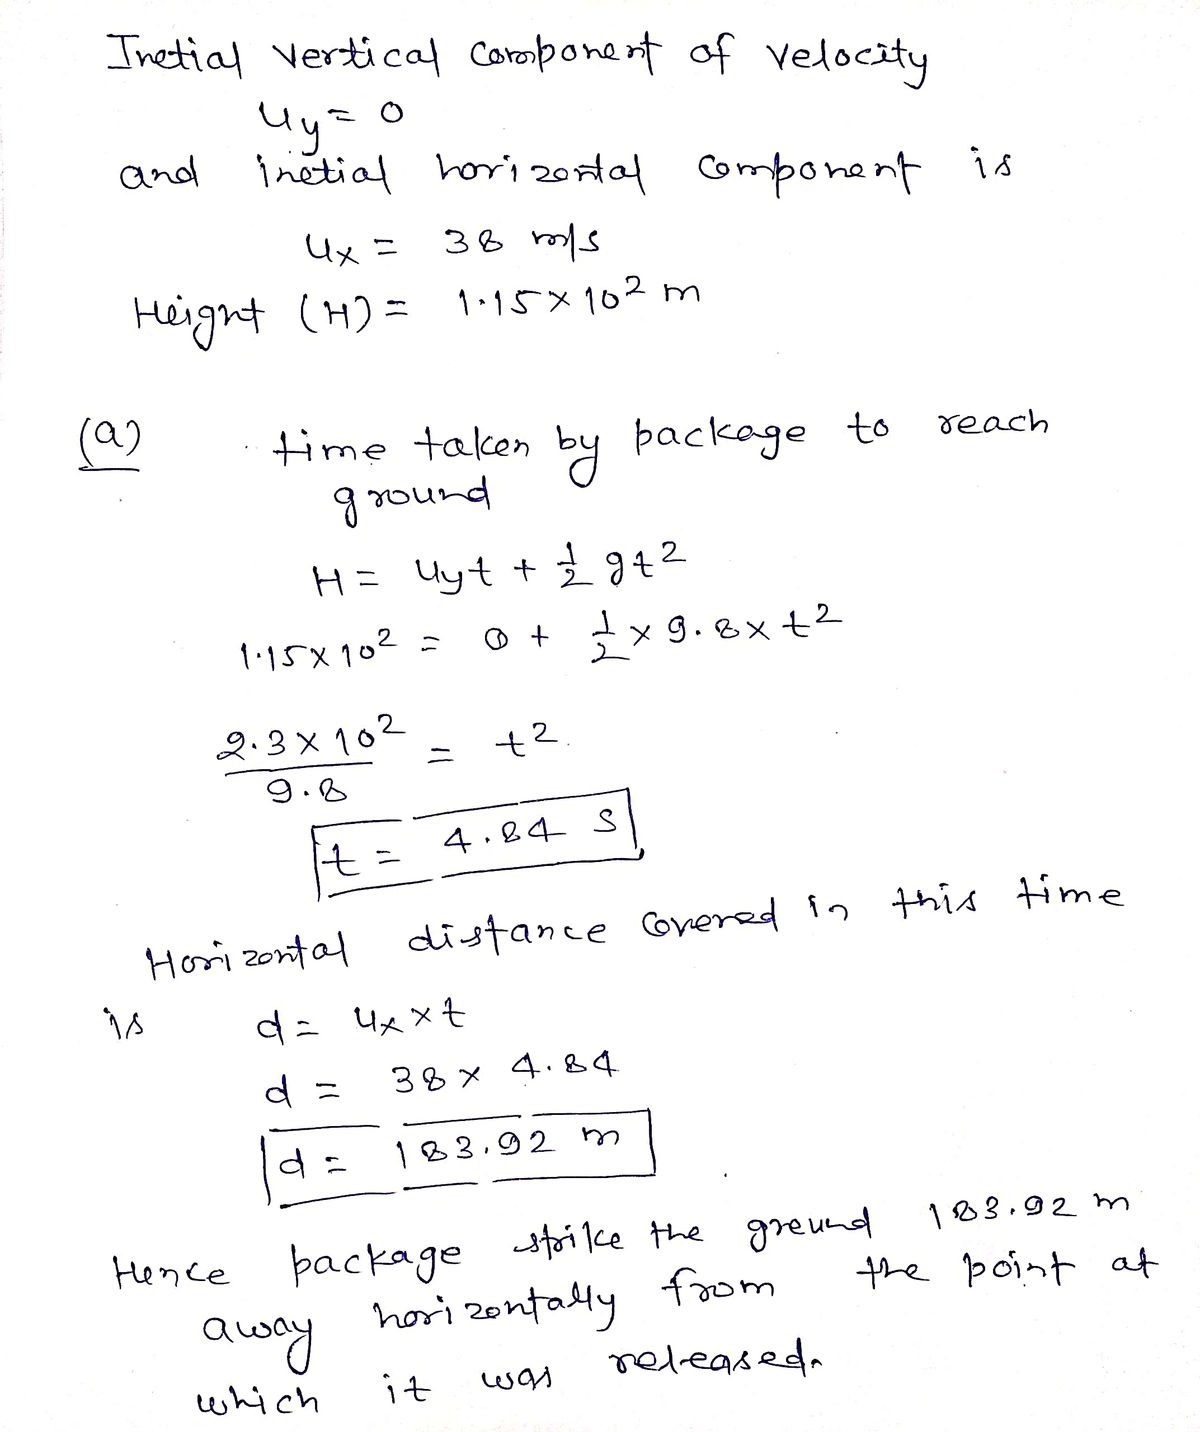 Inetial vertical component of velocity
uy = 0
and inetial horizontal component is
ux = 38 m/s
Height (H) = 1.15 × 10² m
(a) time taken by package to reach
ground
H = uyt + 1/2 gt²
1.15 × 10² = 0 + 1/2 × 9.8 × t²
2.3 × 10² / 9.8 = t²
t = 4.84 s
Horizontal distance covered in this time
is d = ux × t
d = 38 × 4.84
d = 183.92 m
Hence package strike the greund 183.92 m
away horizontally from the point at
which it was released.